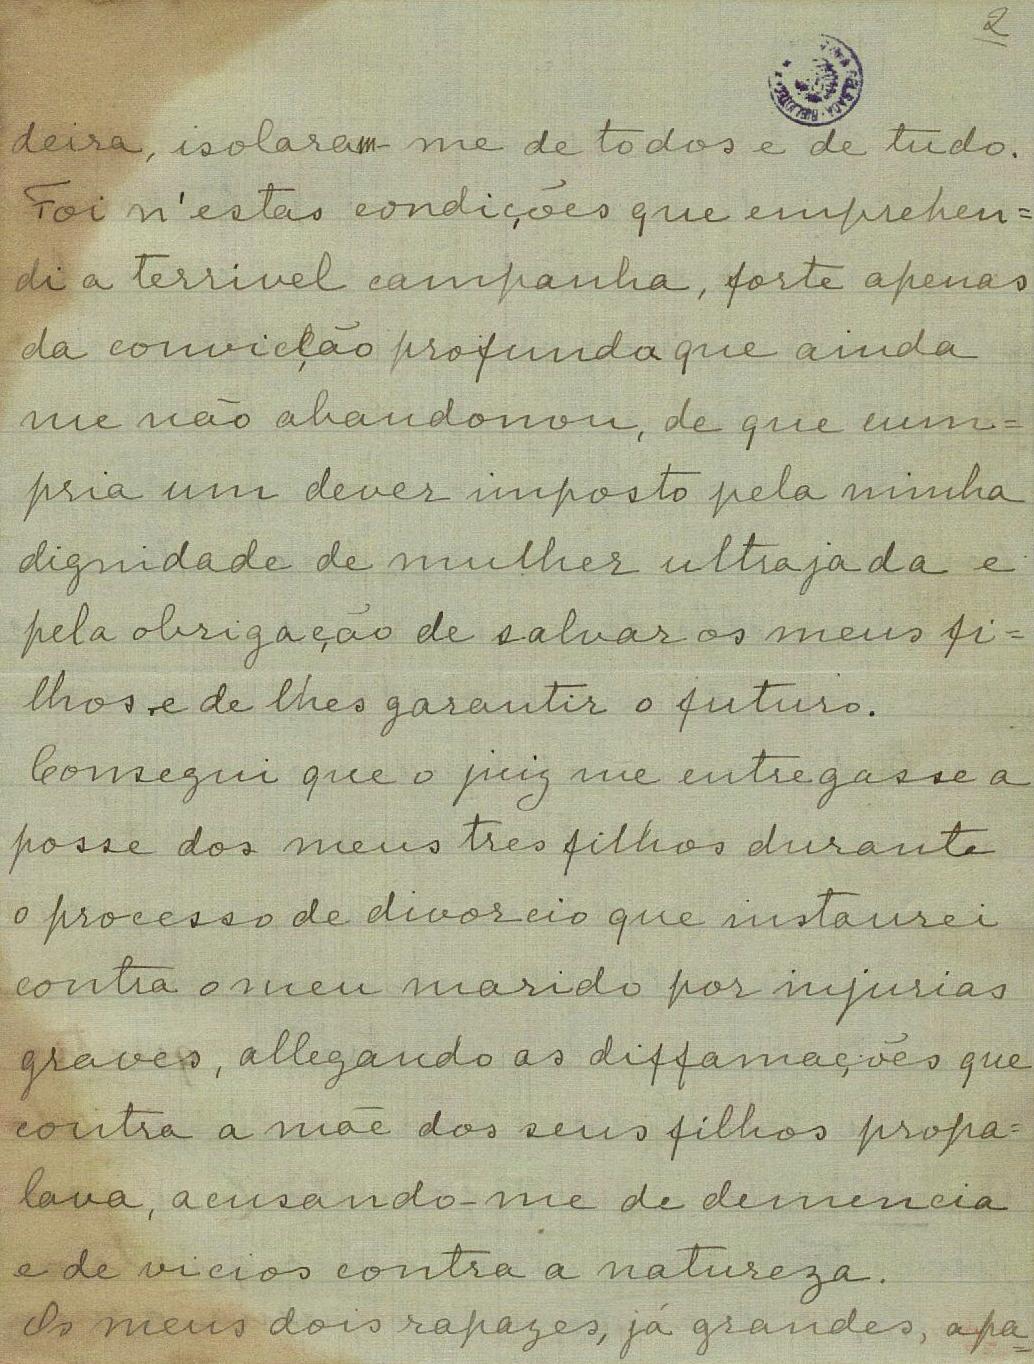 2
deira, isolaram-me de todos e de tudo.
Foi n'estas condições que emprehen=
di a terrivel campanha, forte apenas
da convicção profunda que ainda
me não abandonou, de que cum=
pria um dever imposto pela minha
dignidade de mulher ultrajada e
pela obrigação de salvar os meus fi=
lhos e de lhes garantir o futuro.
Consegui que o juiz me entregasse a
posse dos meus tres filhos durante
o processo de divorcio que instaurei
contra o meu marido por injurias
graves, allegando as diffamações que
contra a mãe dos seus filhos propa=
lava, acusando-me de demencia
e de vicios contra a natureza.
Os meus dois rapazes, já grandes, apa=